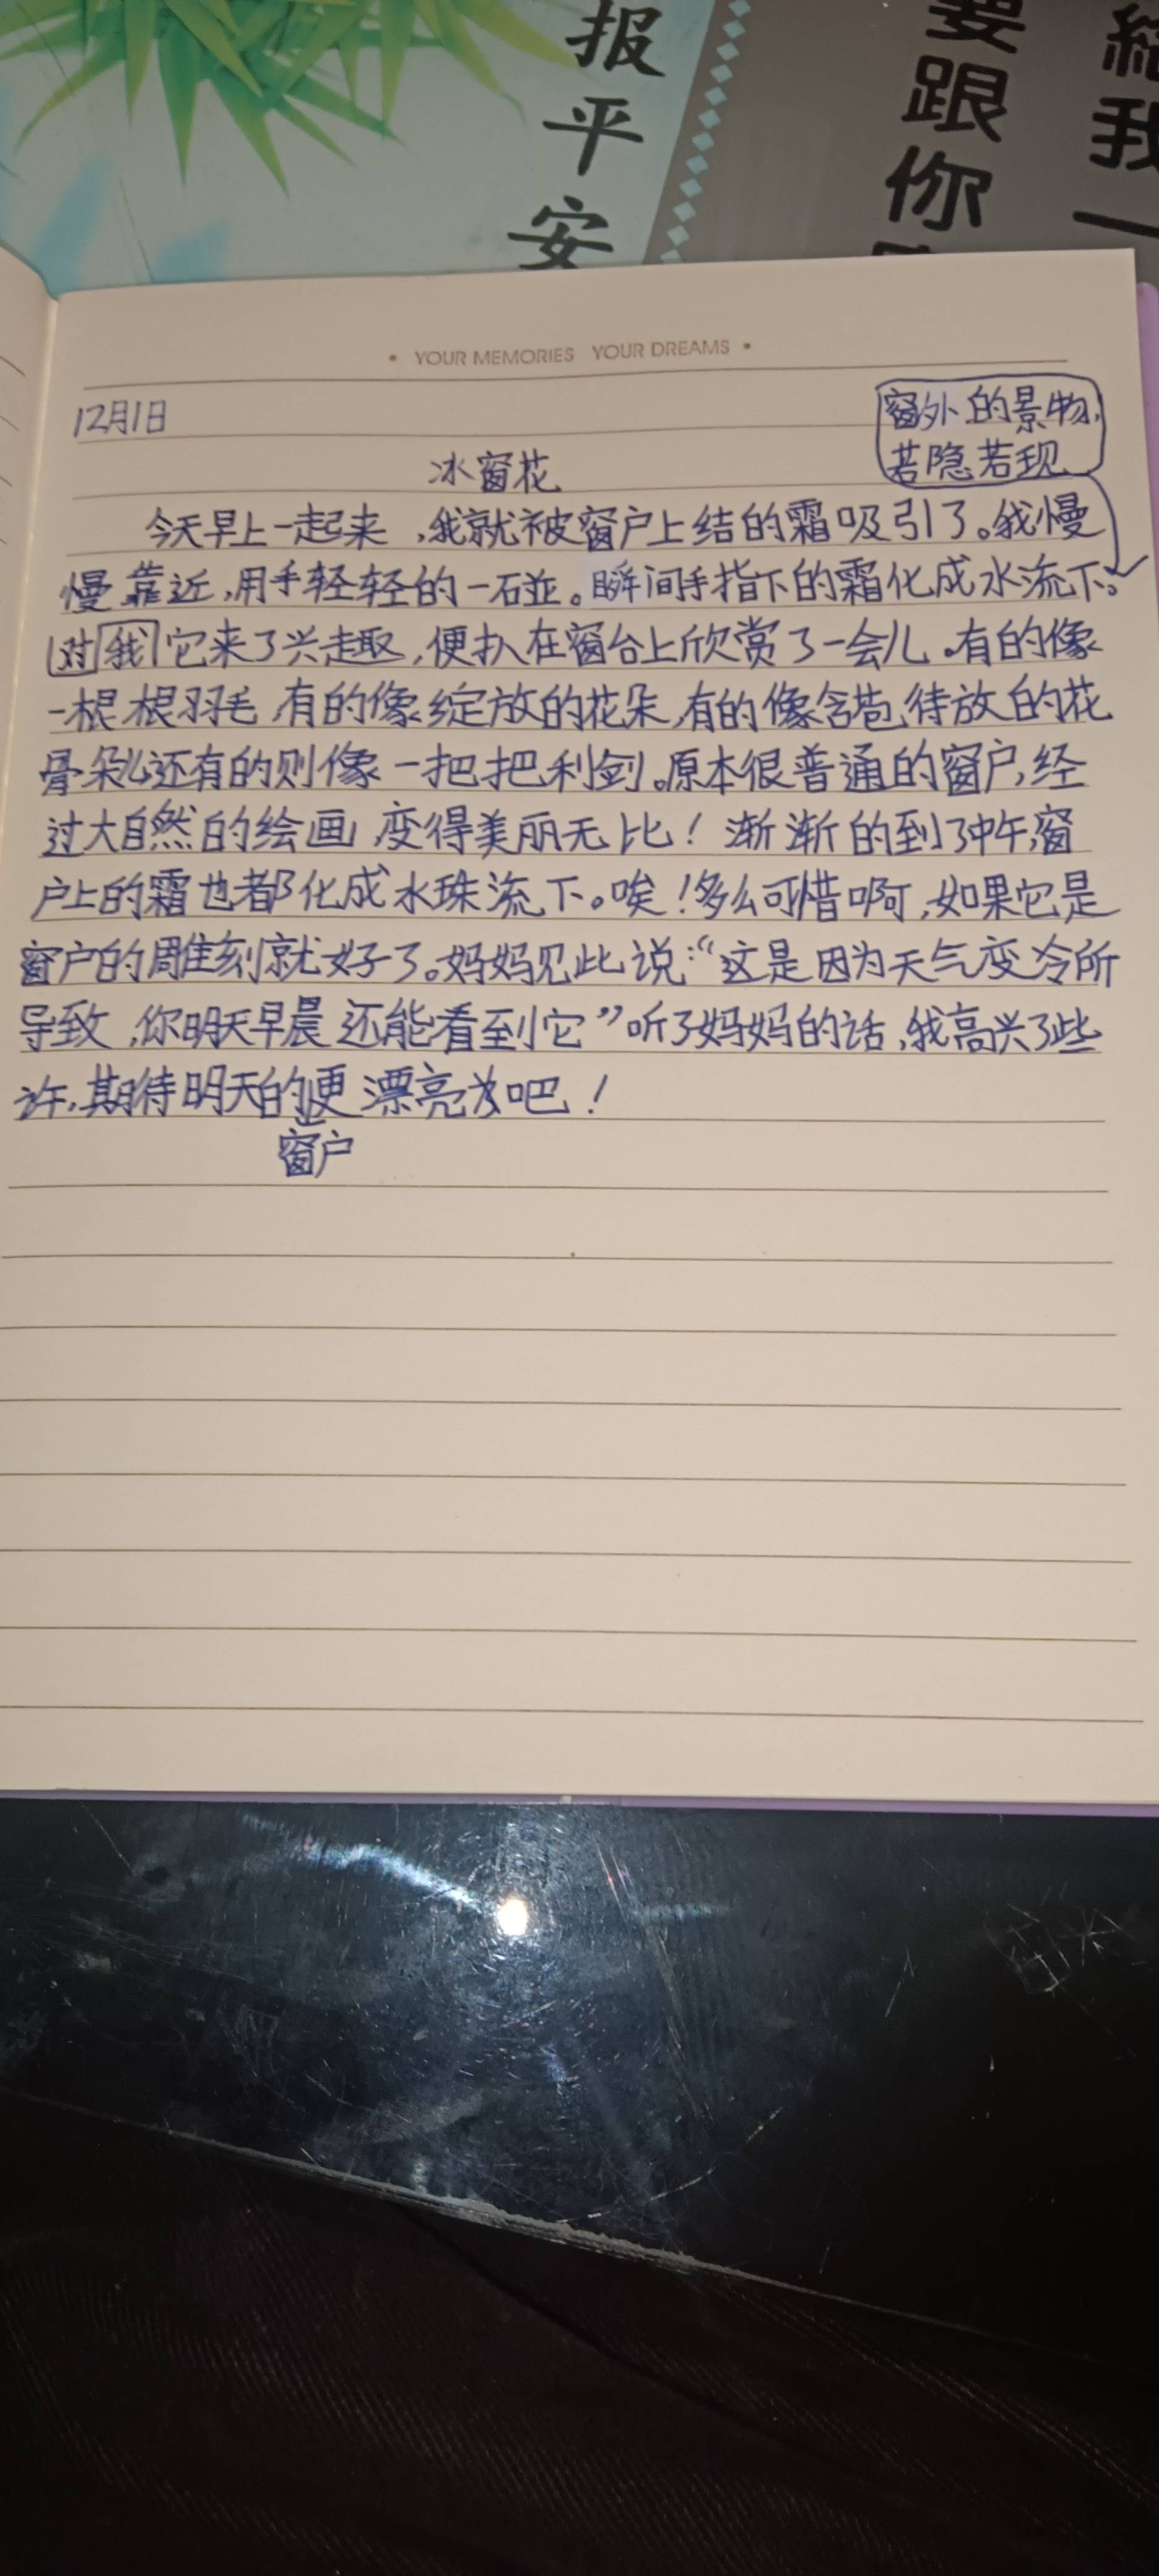 报平安
要跟你
給我一
• YOUR MEMORIES YOUR DREAMS •
12月1日
窗外的景物,
若隐若现
冰窗花
今天早上一起来,我就被窗户上结的霜吸引了。我慢
慢靠近,用手轻轻的一碰。瞬间手指下的霜化成水流下。
对我它来了兴趣,便扒在窗台上欣赏了一会儿。有的像
一根根羽毛,有的像绽放的花朵,有的像含苞待放的花
骨朵儿还有的则像一把把利剑。原本很普通的窗户,经
过大自然的绘画,变得美丽无比!渐渐的到了中午,窗
户上的霜也都化成水珠流下。唉!多么可惜啊,如果它是
窗户的雕刻就好了。妈妈见此说:“这是因为天气变冷所
导致,你明天早晨还能看到它”听了妈妈的话,我高兴了些
许,期待明天的更漂亮吧!
窗户